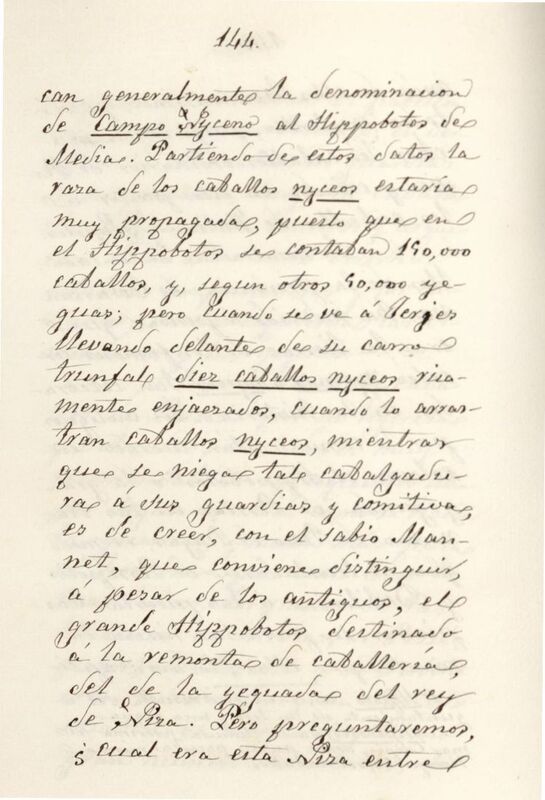 144.
can generalmente la denominacion
de Campo Nyceno al Hippobotos de
Media. Partiendo de estos datos la
raza de los caballos nyceos estaría
muy propagada, puesto que en
el Hippobotos se contaban 150,000
caballos, y, segun otros 50,000 ye-
guas; pero cuando se ve á Jerjes
llevando delante de su carro
triunfal diez caballos nyceos rica-
mente enjaezados, cuando lo arras-
tran caballos nyceos, mientras
que se niega tal cabalgadu-
ra á sus guardias y comitiva,
es de creer, con el sabio Man-
net, que conviene distinguir,
á pezar de los antiguos, el
grande Hippobotos destinado
á la remonta de caballería,
del de la yeguada del rey
de Niza. Pero preguntaremos,
¿cual era esta Niza entre